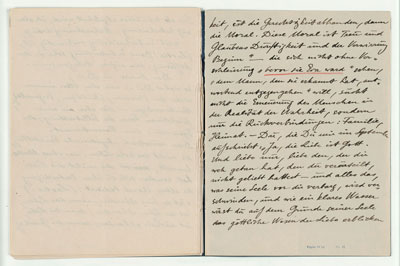 keit, ist die Gerechtigkeit abhanden, dann
die Moral. Diese Moral ist Treu und
Glaubens Dürftigkeit und der Verwirrung
Beginn" — die sich nicht ohne Ver-
"bevor sie Ton ward" sehen,
"dem Mann, den sie erkannt hat, ant-
wortend entgegengehen" will, sucht
nicht die Erneuerung des Menschen in
der Realität der Wahrheit, sondern
nur die Rückverbindungen: Familie,
Heimat. — Du, die Du mir im September
aufschreibst: Ja, die Liebe ist Gott.
Und liebt nur, liebe den, der dir
weh getan hat, den du verurteilst,
nicht geliebt hattest — und alles das,
was seine Seele vor dir verbarg, wird ver-
schwinden, und wie ein klares Wasser
wirst du auf dem Grunde seiner Seele
das göttliche Wesen der Liebe erblicken